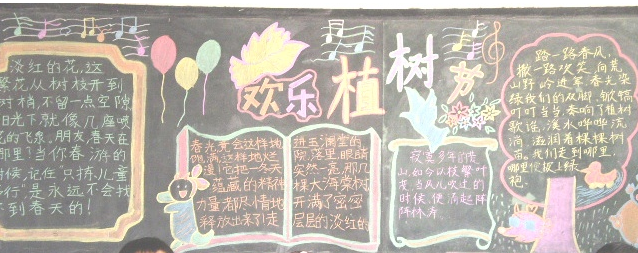 欢乐植树节
淡红的花,这
繁花从树枝开到
树梢,不留一点空隙
阳光下就像几座喷
花的飞泉。朋友春天在
那里!当你春游的
时候,记住“只拣儿童
多行”是永远不会找
不到春天的!
春光竟会这样地
烂漫
它把一冬天
蕴藏的精神
力量都尽情地
释放出来了走
进玉澜堂的
院落里,眼睛
突然一亮,那几
棵大海棠树
开满了密密
层层的淡红的
多年的
山,如今以枝繁叶
茂,当从儿吹过的
时候,便荡起阵
阵林涛
踏一路春风,
撒一路欢笑,向荒
山野岭进军。春光染
绿我们的双脚。锹镐
叮叮当当,奏响了植树
歌谣,溪水哗哗流
淌,滋润着棵棵树
苗。我们走到哪里,
哪里便披上绿
袍。